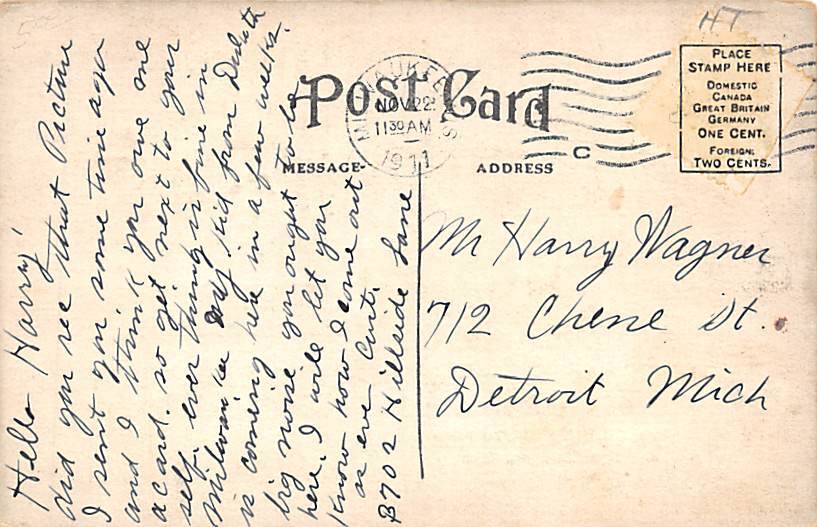 HT
PLACE
STAMP HERE
DOMESTIC
CANADA
GREAT BRITAIN
GERMANY
ONE CENT.
FOREIGN:
TWO CENTS.
Post Card
NOV 22
11 30 AM
1911
C
MESSAGE-
ADDRESS
Hello Harry'
did you rec that Picture
I sent you some time ago
and I think you owe me
a card. so get next to your
self. ever thing is fine in
Milwaukee my kid from Duluth
is coming here in a few weeks.
big noise you ought to be
here. I will let you
know how I come out
as ever Curt.
3702 Hillside Lane
Mr Harry Wagner
712 Chene St.
Detroit Mich